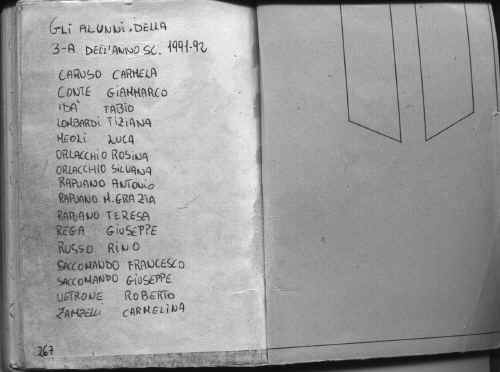 GLI ALUNNI DELLA
3-A DELL'ANNO SC. 1991-92
CARUSO CARMELA
CONTE GIAMMARCO
IDA' FABIO
LOMBARDI TIZIANA
MEOLI LUCA
ORLACCHIO ROSINA
ORLACCHIO SILVANA
RAPUANO ANTONIO
RAPUANO M. GRAZIA
RAPUANO TERESA
REGA GIUSEPPE
RUSSO RINO
SACCOMANDO FRANCESCO
SACCOMANDO GIUSEPPE
VETRONE ROBERTO
ZAMPELLI CARMELINA
267